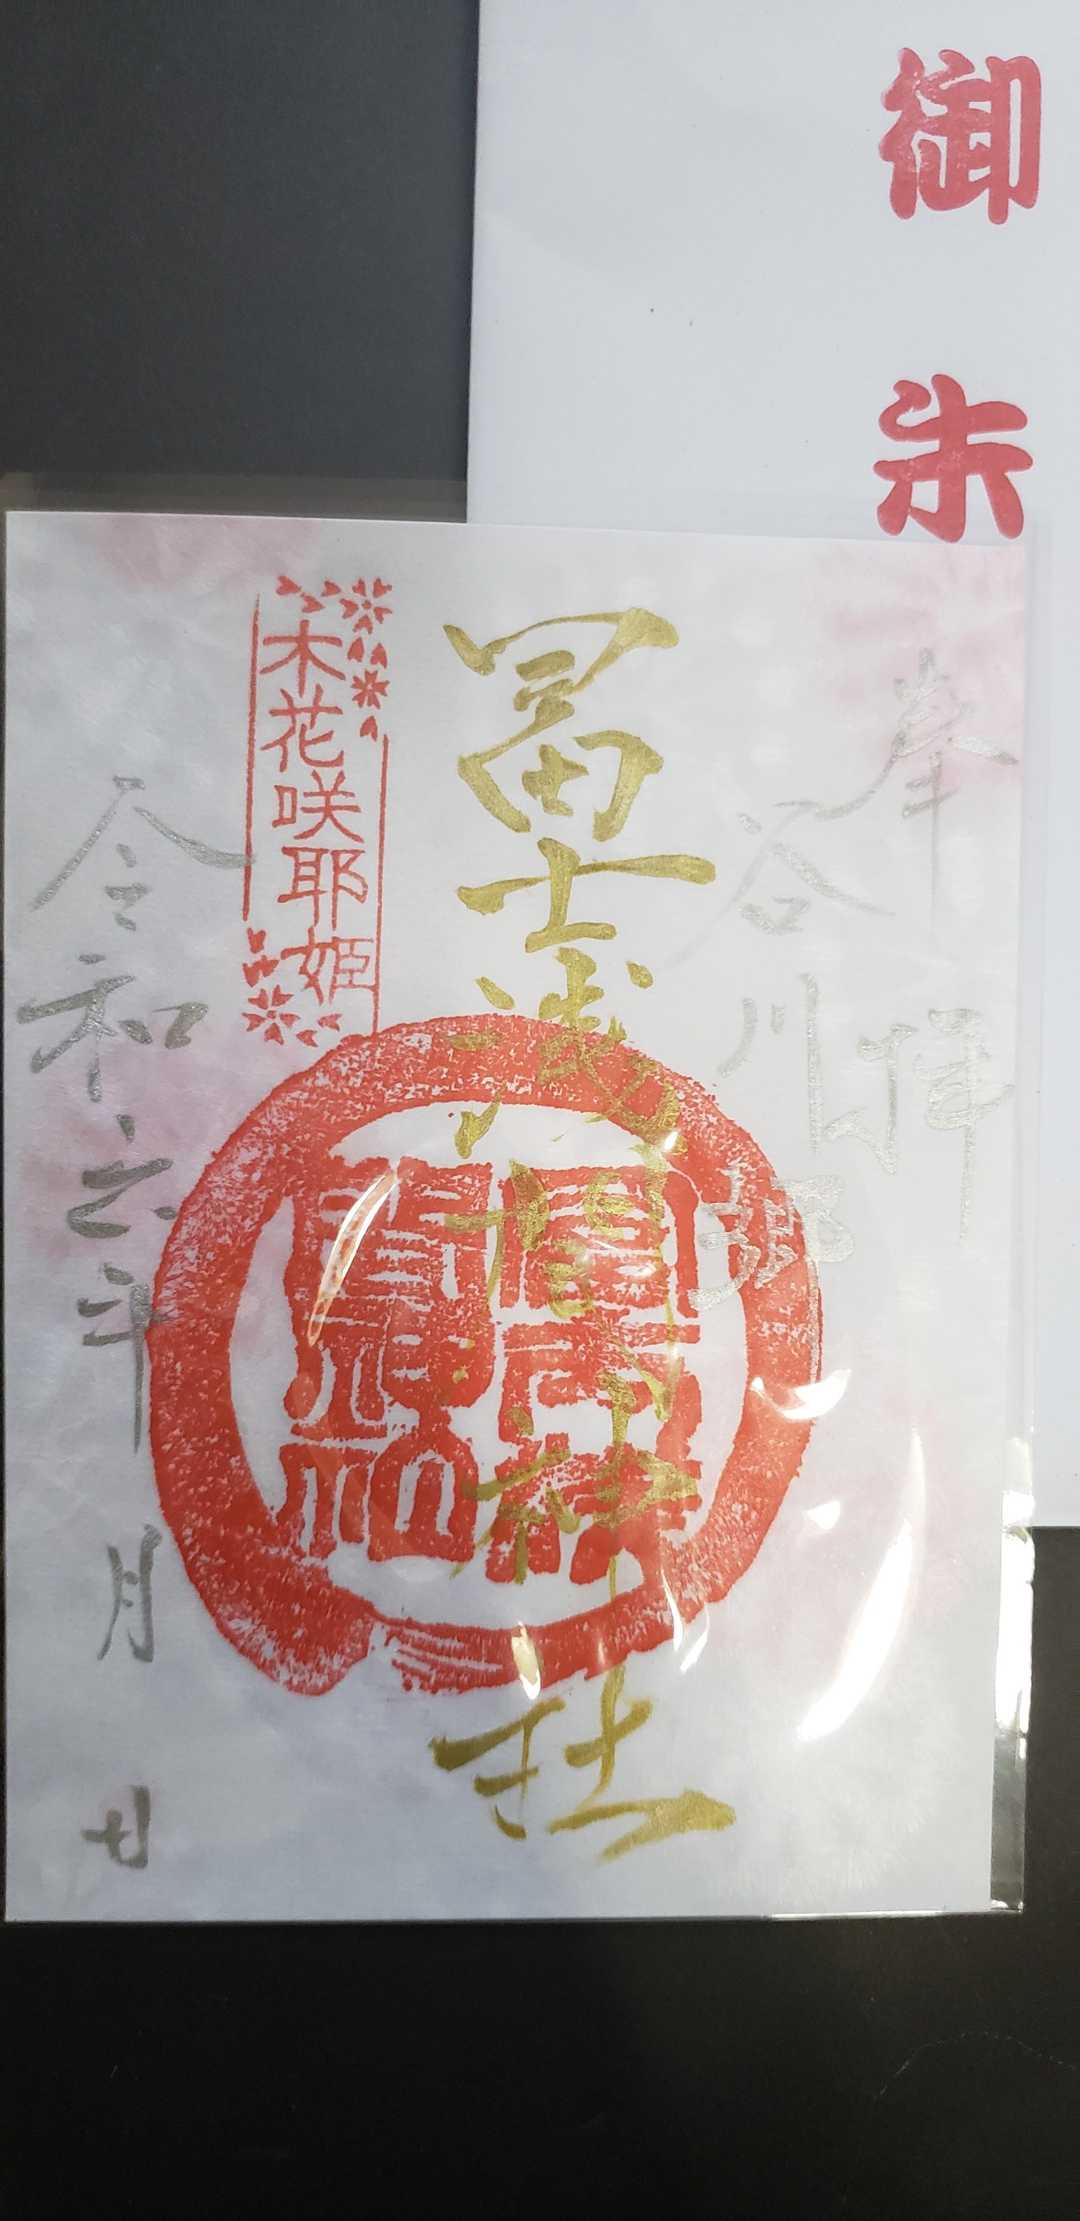 御朱
奉拝
谷川郷
冨士浅间神社
木花咲耶姫
令和六年 月 日